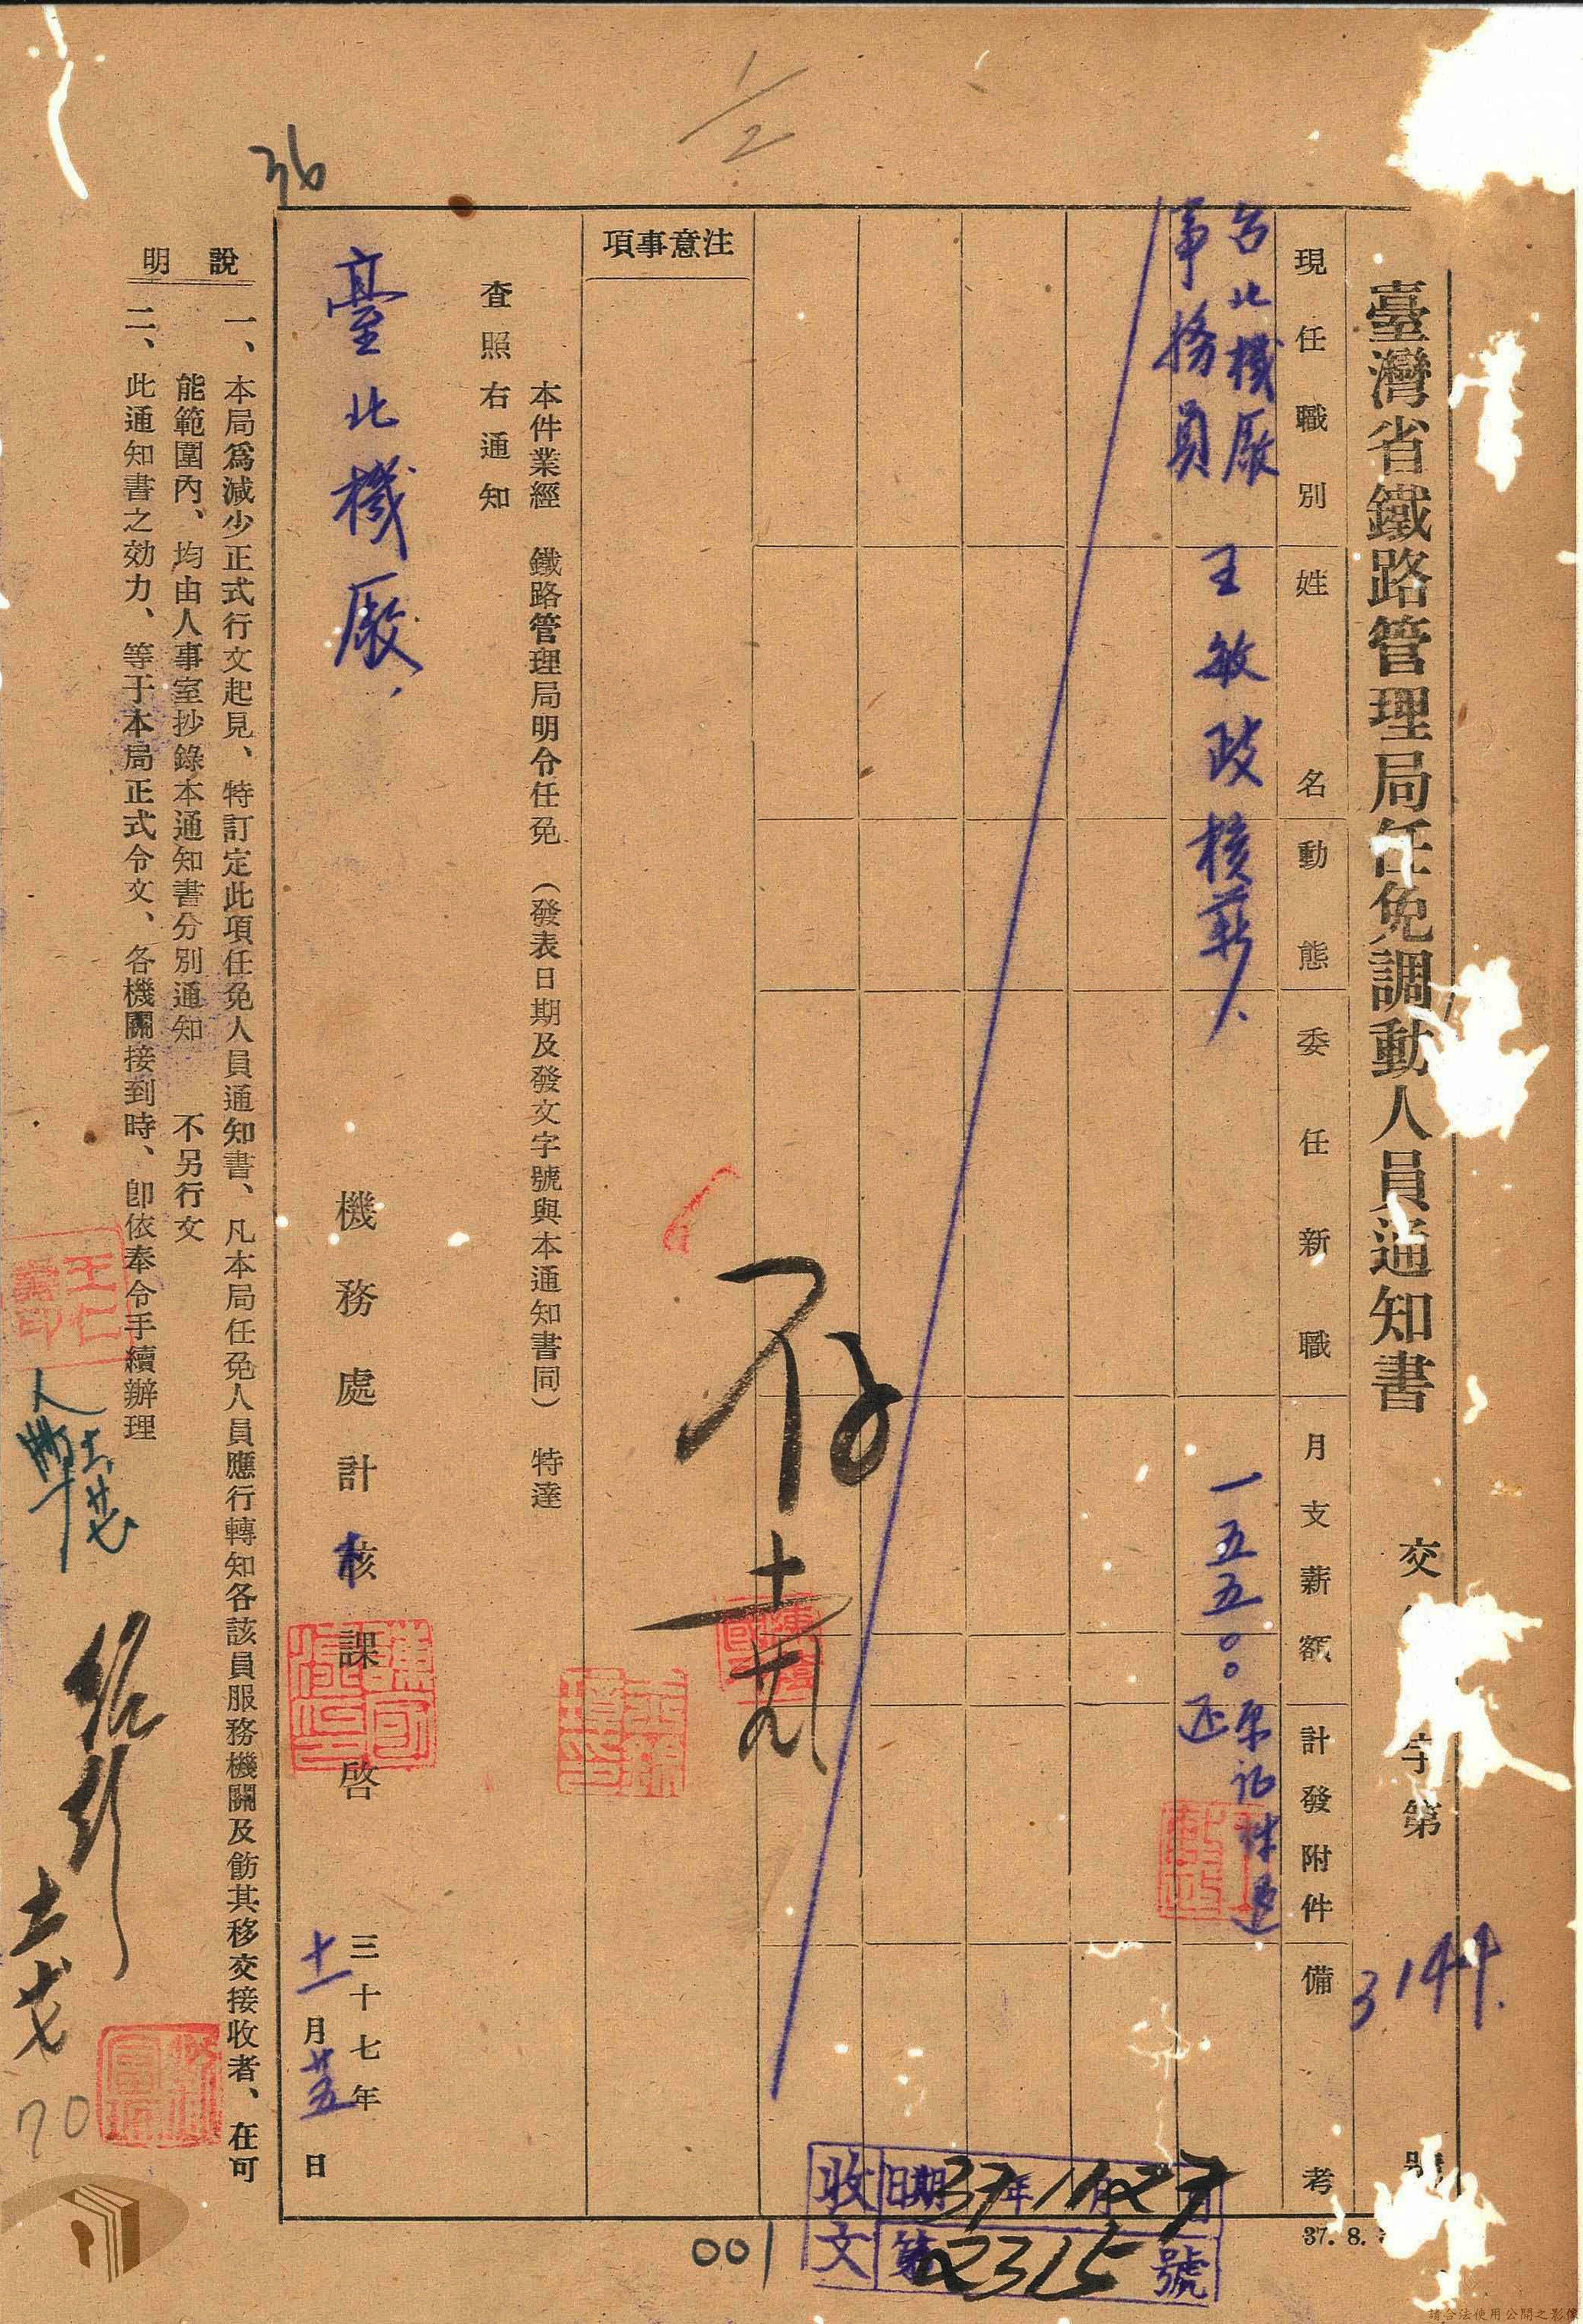 臺灣省鐵路管理局任免調動人員通知書
交
字第
3144
號
現任職別
姓名
動態
委任新職
月支薪額
計發附件
備考
台北機厰
事務員
王敏政
核薪
一五五〇〇
原證件退
還
注意事項
本件業經 鐵路管理局明令任免 (發表日期及發文字號與本通知書同) 特達
查照右通知
臺北機厰
機務處計核課啓
三十七年
十一月廿五日
說明
一、本局爲減少正式行文起見、特訂定此項任免人員通知書、凡本局任免人員應行轉知各該員服務機關及飭其移交接收者、在可
能範圍內、均由人事室抄錄本通知書分別通知 不另行文
二、此通知書之効力、等于本局正式令文、各機關接到時、卽依奉令手續辦理
存
收文
日期37年11月27日
第02315號
001
37. 8.
36
1/2
70
請合法使用公開之影像